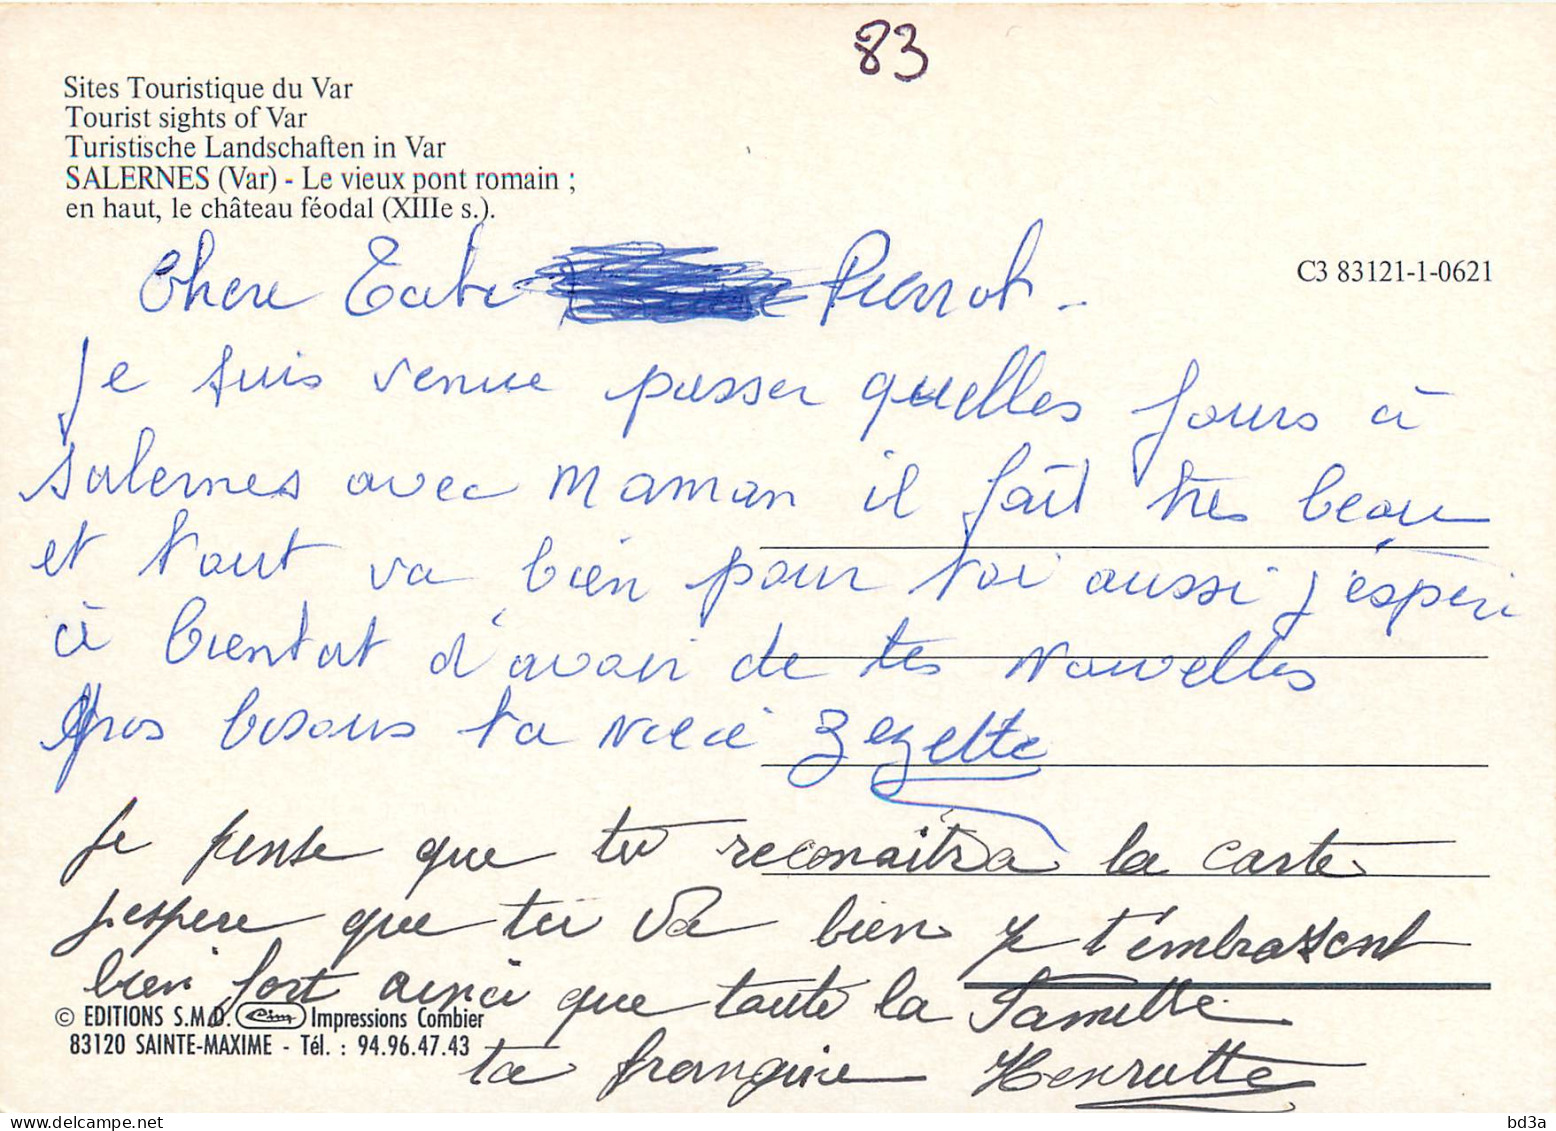 83
Sites Touristique du Var
Tourist sights of Var
Turistische Landschaften in Var
SALERNES (Var) - Le vieux pont romain ;
en haut, le château féodal (XIIIe s.).
C3 83121-1-0621
Chere Pierrot -
Je suis venue passer quelles jours à
Salernes avec Maman il fait très beau
et tout va bien pour toi aussi j'espère
à bientot d'avoir de tes Nouvelles
Gros bisous ta niece Zezette
Je pense que tu reconaitra la carte
j'espere que tu va bien je t'embrassent
bien fort ainci que toute la famille
ta frangine Henriette
© EDITIONS S.M.D. Cim Impressions Combier
83120 SAINTE-MAXIME - Tél. : 94.96.47.43
bd3a